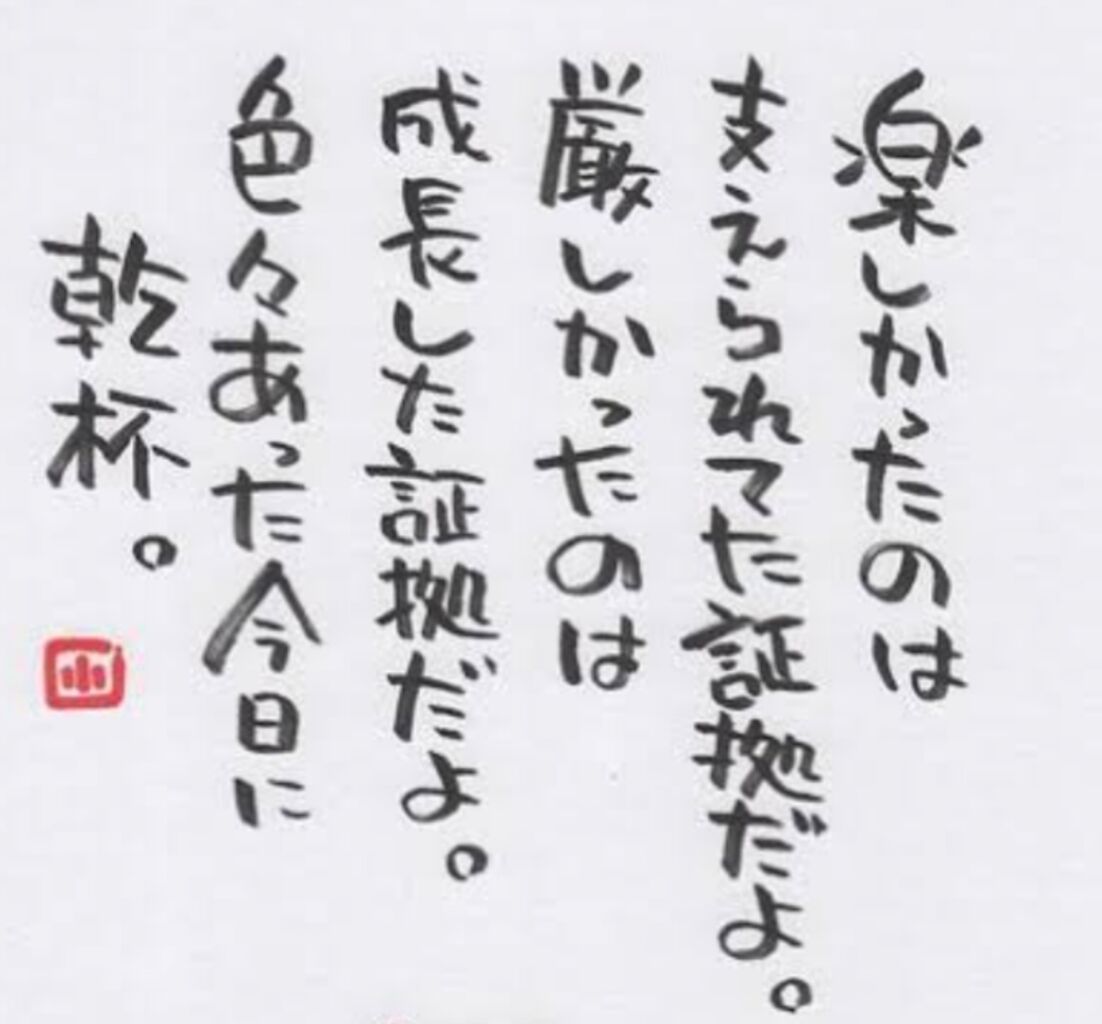 楽しかったのは
支えられてた証拠だよ。
厳しかったのは
成長した証拠だよ。
色々あった今日に
乾杯。